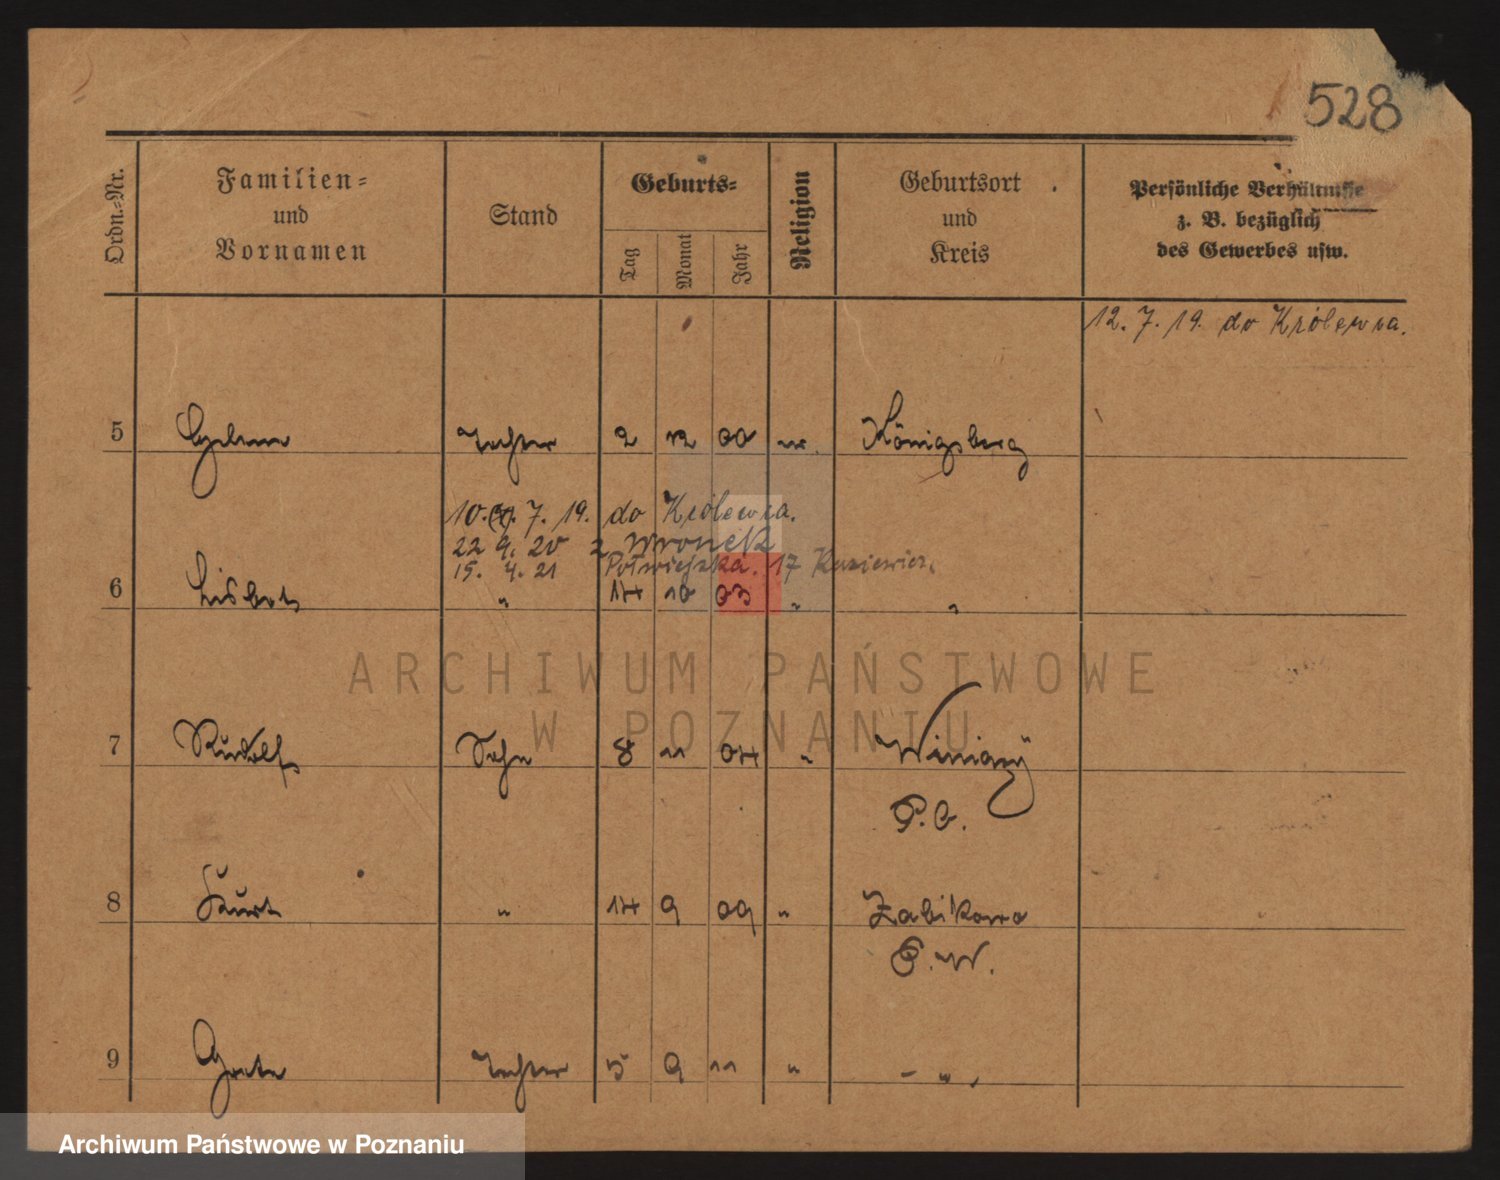 528
Ordn.-Nr.
Familien-
und
Vornamen
Stand
Geburts-
Tag
Monat
Jahr
Religion
Geburtsort
und
Kreis
Persönliche Verhältnisse
z. B. bezüglich
des Gewerbes usw.
12. 7. 19. do Królewca.
5 Tochter 2 12 00 Königsberg
10. 7. 19. do Królewca.
22 9. 20 z Wronek
15. 4. 21 Półwiejska. 17
6 Lisbet " 14 10 03 " "
ARCHIWUM PAŃSTWOWE
W POZNANIU
7 Rudolf Sohn 8 11 04 " Winiary
P. O.
8 Kurt " 14 9 09 " Zabikowo
P. W.
9 Grete Tochter 5 9 11 " - " -
Archiwum Państwowe w Poznaniu